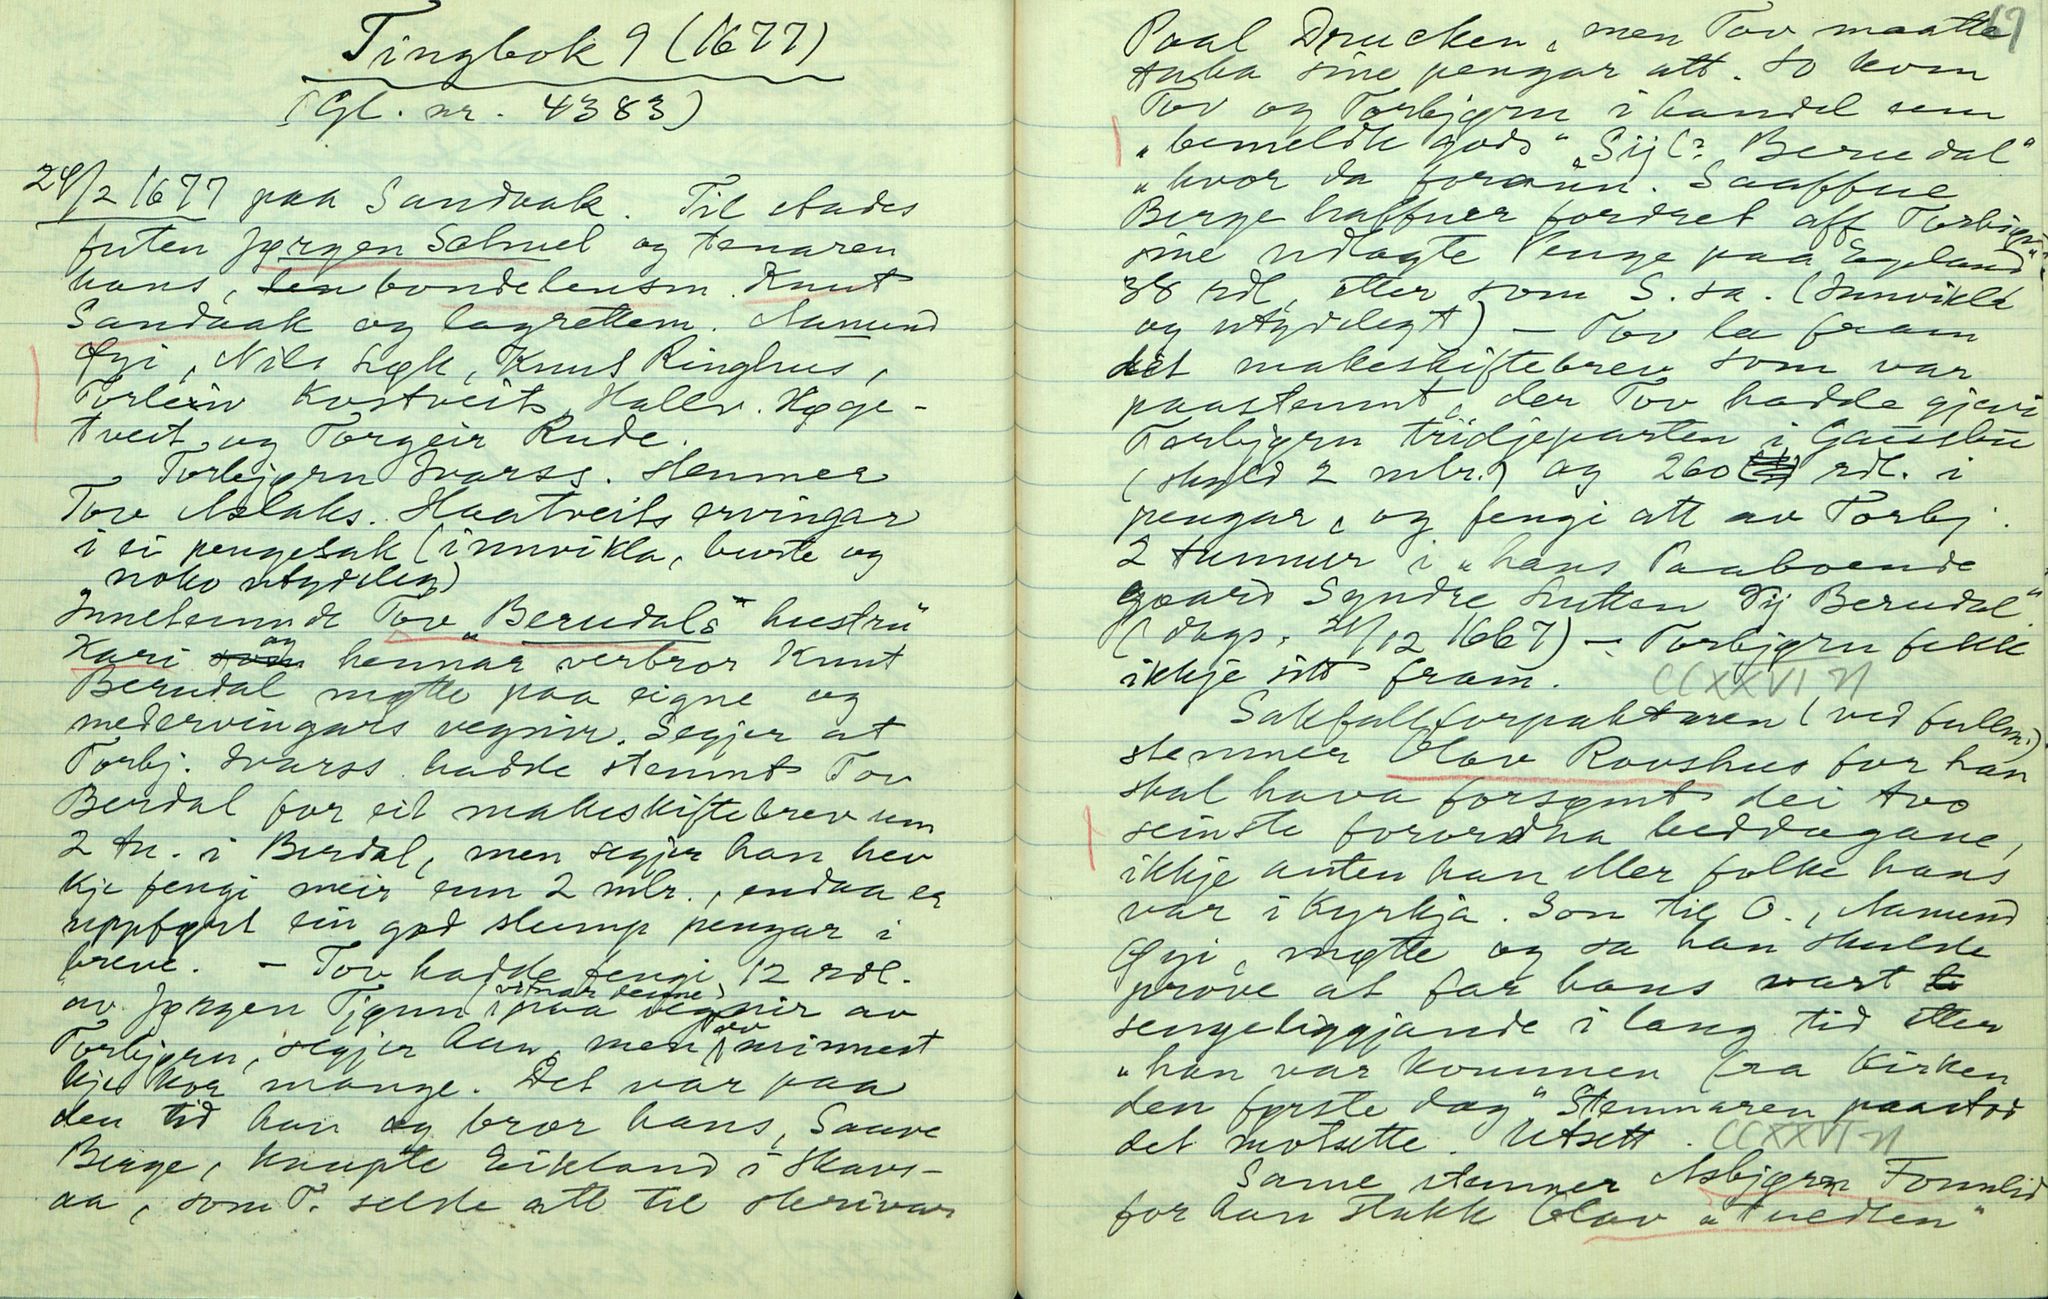 Tingbok 9 (1677)
(Gl. nr. 4383)
24/2 1677 paa Sandvak. Til stades
futen Jørgen Sølnvel og tenaren
hans, bondelensm. Knut
Sandvak og lagrettem. Aamund
Øyi, Nils Løk, Knut Ringhus,
Torleiv Kostveit, Hallv. Høge-
tveit og Torgeir Rude.
Torbjørn Ivarss. stemner
Tov Aslaks. Haatveits ervingar
i ei pengesak (innvikla, buste og
noko utydeleg)
Innstemnde Tov "Berudals" hustru
Kari og hennar verbror Knut
Berudal møtte paa eigne og
medervingars vegnir. Segjer at
Torbj. Ivarss. hadde stemnt Tov
Berdal for eit makeskiftebrev um
2 tn. i Berdal, men segjer han hev
kje fengi meir enn 2 mlr., endaa er
uppført ein god slump pengar i
breve. - Tov hadde fengi 12 rdl.
av Jørgen Tjønn (vitnar denne) paa vegnir av
Torbjørn, segjer han, men Tov minnest
kje kor mange. Det var paa
den tid han og bror hans, Saave
Berge, kaupte Eikland i Skavs-
aa, som T. selde att til skrivar
19
Paal Drucken, men Tov maatte
taka sine pengar att. So kom
Tov og Torbjørn i handel um
"bemeldte gods" "Sij (? Berudal"
"hvor da foraun. Saaffue
Berge haffuer fordret aff Torbiørn
sine udlagte Penge paa Egeland"
38 rdl, etter som S. sa. (Innvikla
og utydelegt) - Tov la fram
det makeskiftebrev som var
paastemnt, der Tov hadde gjevi
Torbjørn tridjeparten i Gausbu
(skyld 2 mlr.) og 260 rdl. i
pengar, og fengi att av Torbj.
2 tunnur i "hans Paaboende
gaard Syndre Lutten Sij Berudal"
(dags. 21/12 1667) - Torbjørn fekk
ikkje sitt fram. CCXXVI n
Sakfallforpaktaren (ved fullm.)
stemner Olav Rovshus for han
skal hava forsømt dei tvo
seinste forordna beddagane,
ikkje anten han eller folke hans
var i kyrkja. Son til O., Aamund
Øyi, møtte og sa han skulde
prove at far hans vart
sengeliggjande i lang tid etter
"han var kommen fra Kirken
den første dag". Stemnaren paastod
det motsette. Utsett. CCXXVI n
Same stemner Asbjørn Fonnlid
for han stakk Olav "Tuedten"